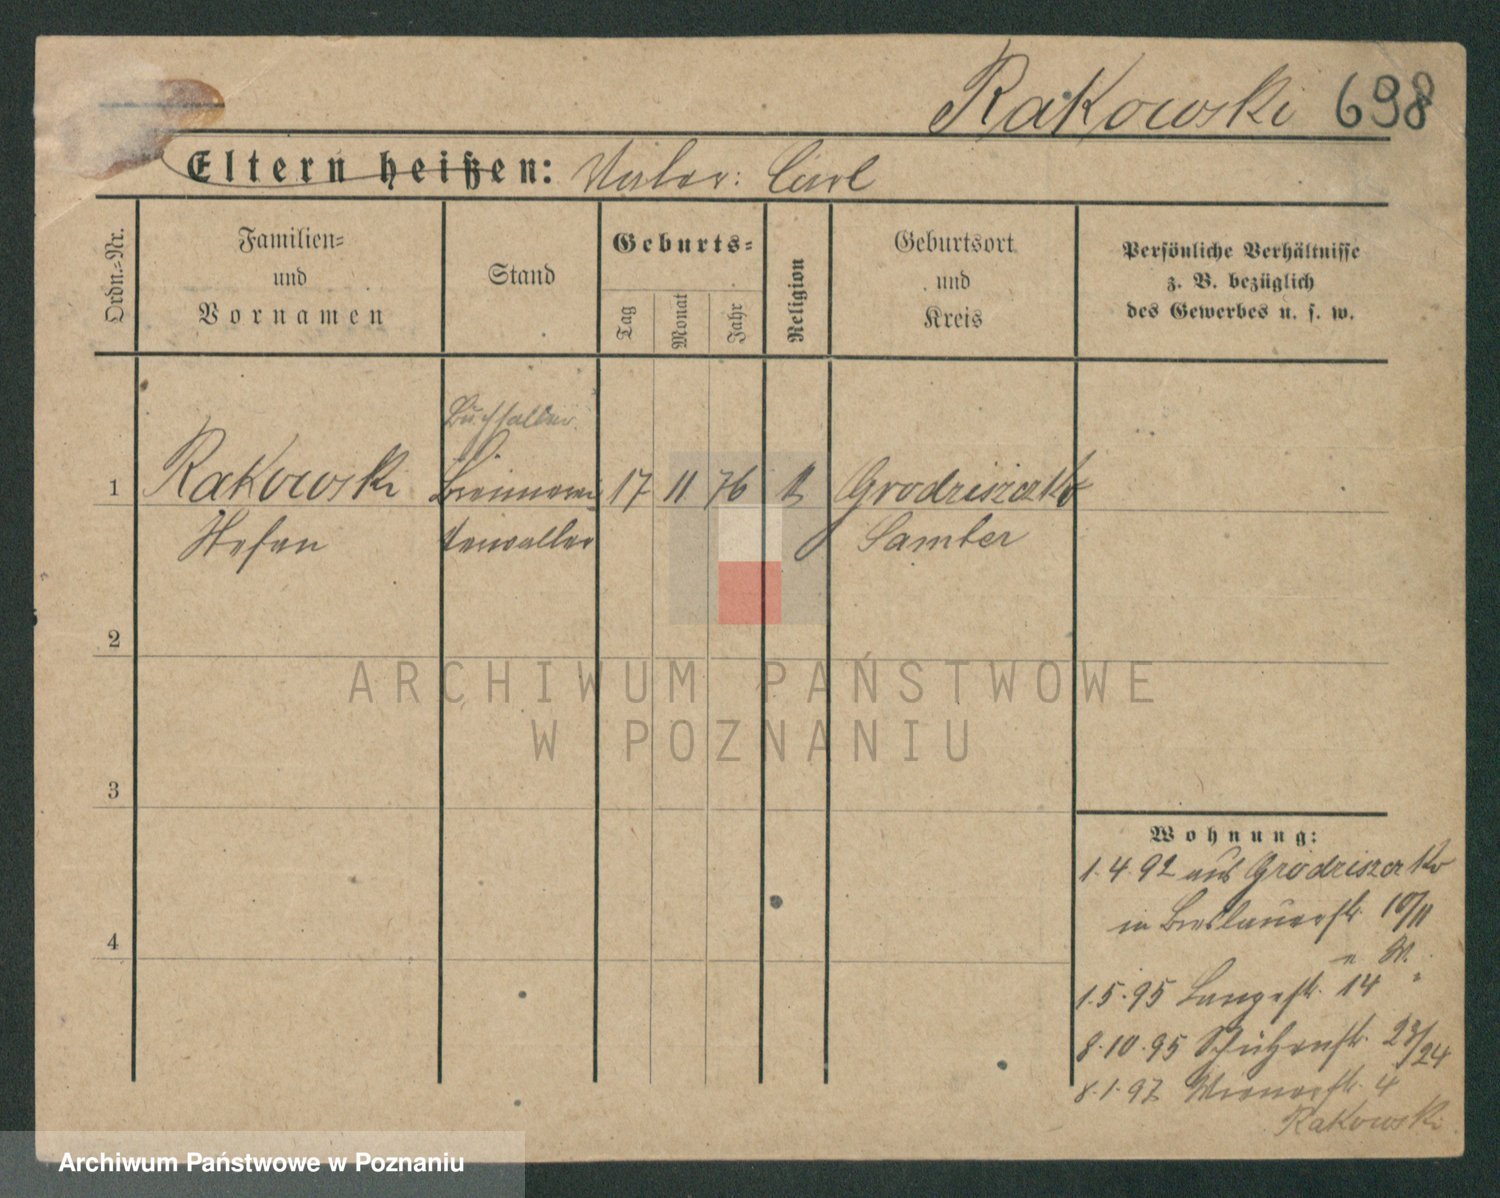 Rakowski 698
Eltern heißen: Vater: Carl
Ordn.=Nr.
Familien=
und
Vornamen
Stand
Geburts=
Tag
Monat
Jahr
Religion
Geburtsort
und
Kreis
Persönliche Verhältnisse
z. B. bezüglich
des Gewerbes u. s. w.
Buchhalter
1 Rakowski 17 11 76 Grodziszczko
Stefan Verwalter Samter
2
3
4
ARCHIWUM PAŃSTWOWE
W POZNANIU
Wohnung:
1.4.92 aus Grodziszczko
in Breslauerstr. 10/11
1.5.95 Langestr. 14 "
8.10.95 Schützenstr. 23/24
8.1.97 Wienerstr. 4
Rakowski
Archiwum Państwowe w Poznaniu